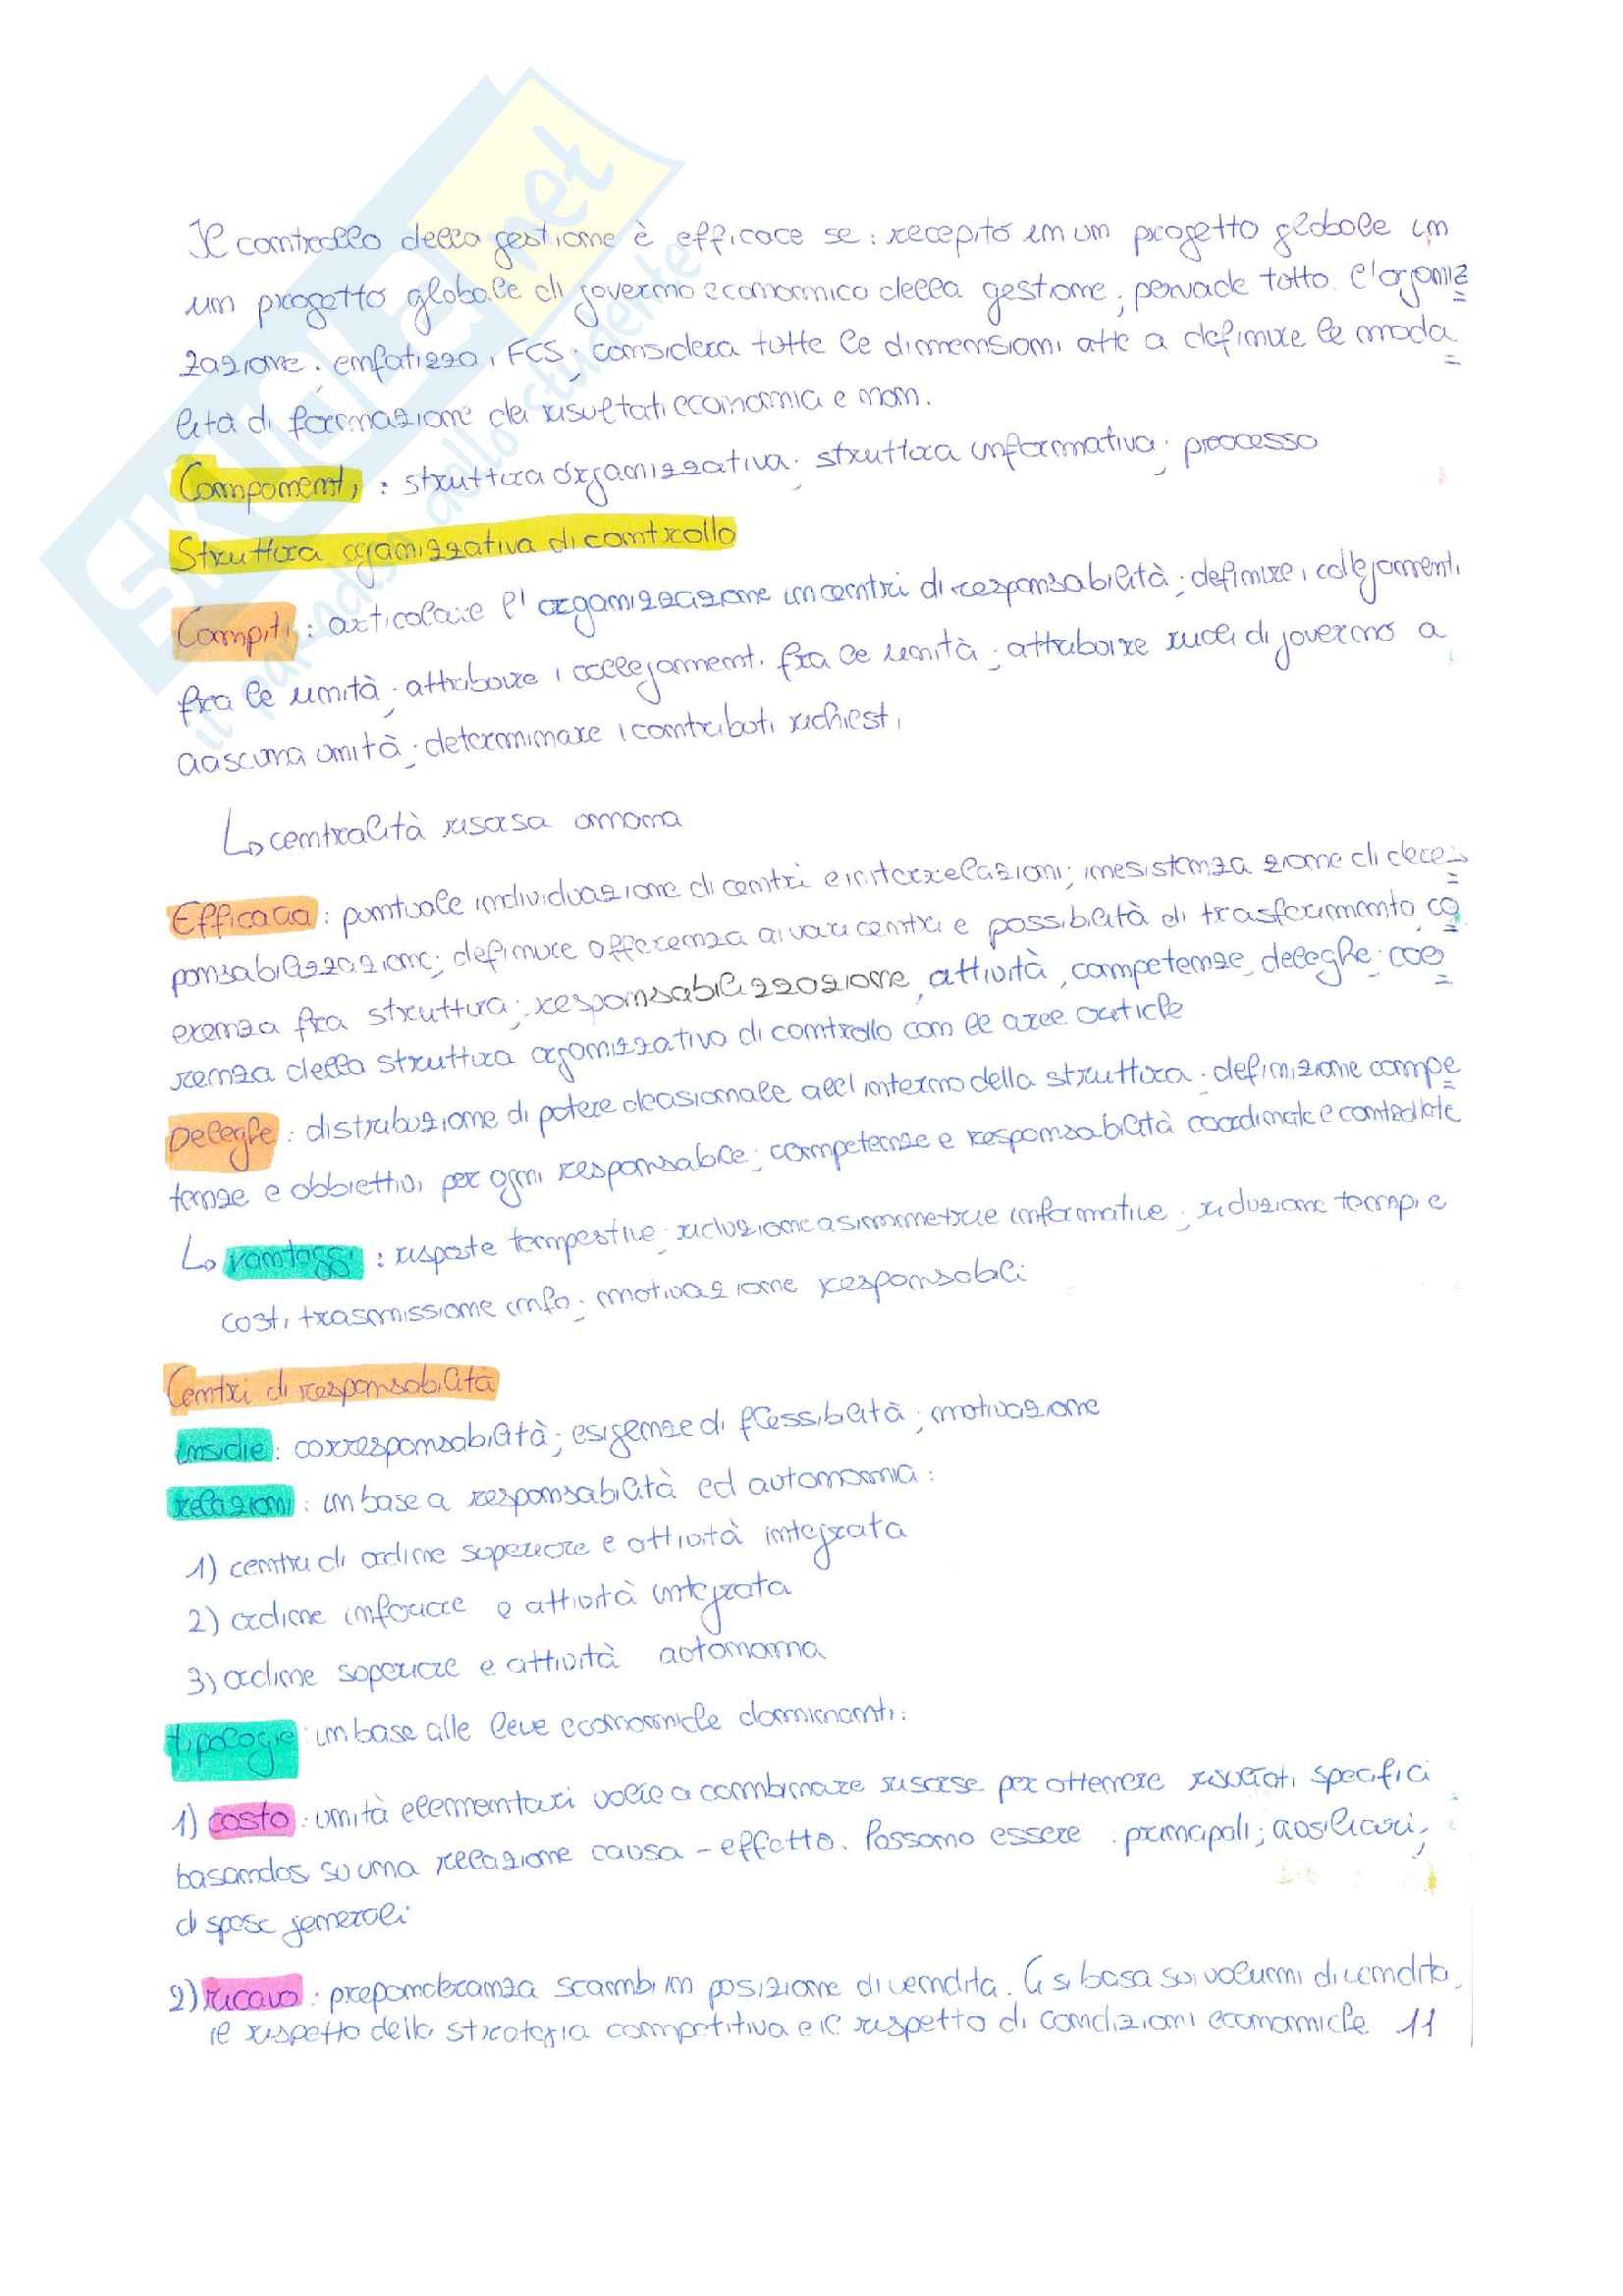 Il controllo della gestione è efficace se: recepito in un progetto globale in
un progetto globale di governo economico della gestione; pervade tutto l'organiz
zazione; enfatizza i FCS; considera tutte le dimensioni atte a definire le moda
lità di formazione dei risultati economici e non.
Componenti: struttura organizzativa; struttura informativa; processo
Struttura organizzativa di controllo
Compiti: articolare l'organizzazione in centri di responsabilità; definire i collegamenti
fra le unità; attribuire i collegamenti fra le unità; attribuire ruoli di governo a
ciascuna unità; determinare i contributi richiesti
↳ centralità risorsa umana
Efficacia: puntuale individuazione di centri e interrelazioni; inesistenza zione di dere
ponsabilizzazione; definire afferenza ai vari centri e possibilità di trasferimento; co
erenza fra struttura; responsabilizzazione, attività, competenze, deleghe; coe
renza della struttura organizzativa di controllo con le aree critiche
Deleghe: distribuzione di potere decisionale all'interno della struttura; definizione compe
tenze e obbiettivi per ogni responsabile; competenze e responsabilità coordinate e controllate
↳ vantaggi: risposte tempestive; riduzione asimmetrie informative; riduzione tempi e
costi trasmissione info; motivazione responsabili
Centri di responsabilità
insidie: corresponsabilità; esigenze di flessibilità; motivazione
relazioni: in base a responsabilità ed autonomia:
1) centri di ordine superiore e attività integrata
2) ordine inferiore e attività integrata
3) ordine superiore e attività autonoma
tipologie: in base alle leve economiche dominanti:
1) costo: unità elementari volte a combinare risorse per ottenere risultati specifici
basandosi su una relazione causa - effetto. Possono essere: principali; ausiliari;
di spese generali
2) ricavo: preponderanza scambi in posizione di vendita. Ci si basa sui volumi di vendita,
il rispetto della strategia competitiva e il rispetto di condizioni economiche 11
SKUOLA.net
il paradiso dello studente